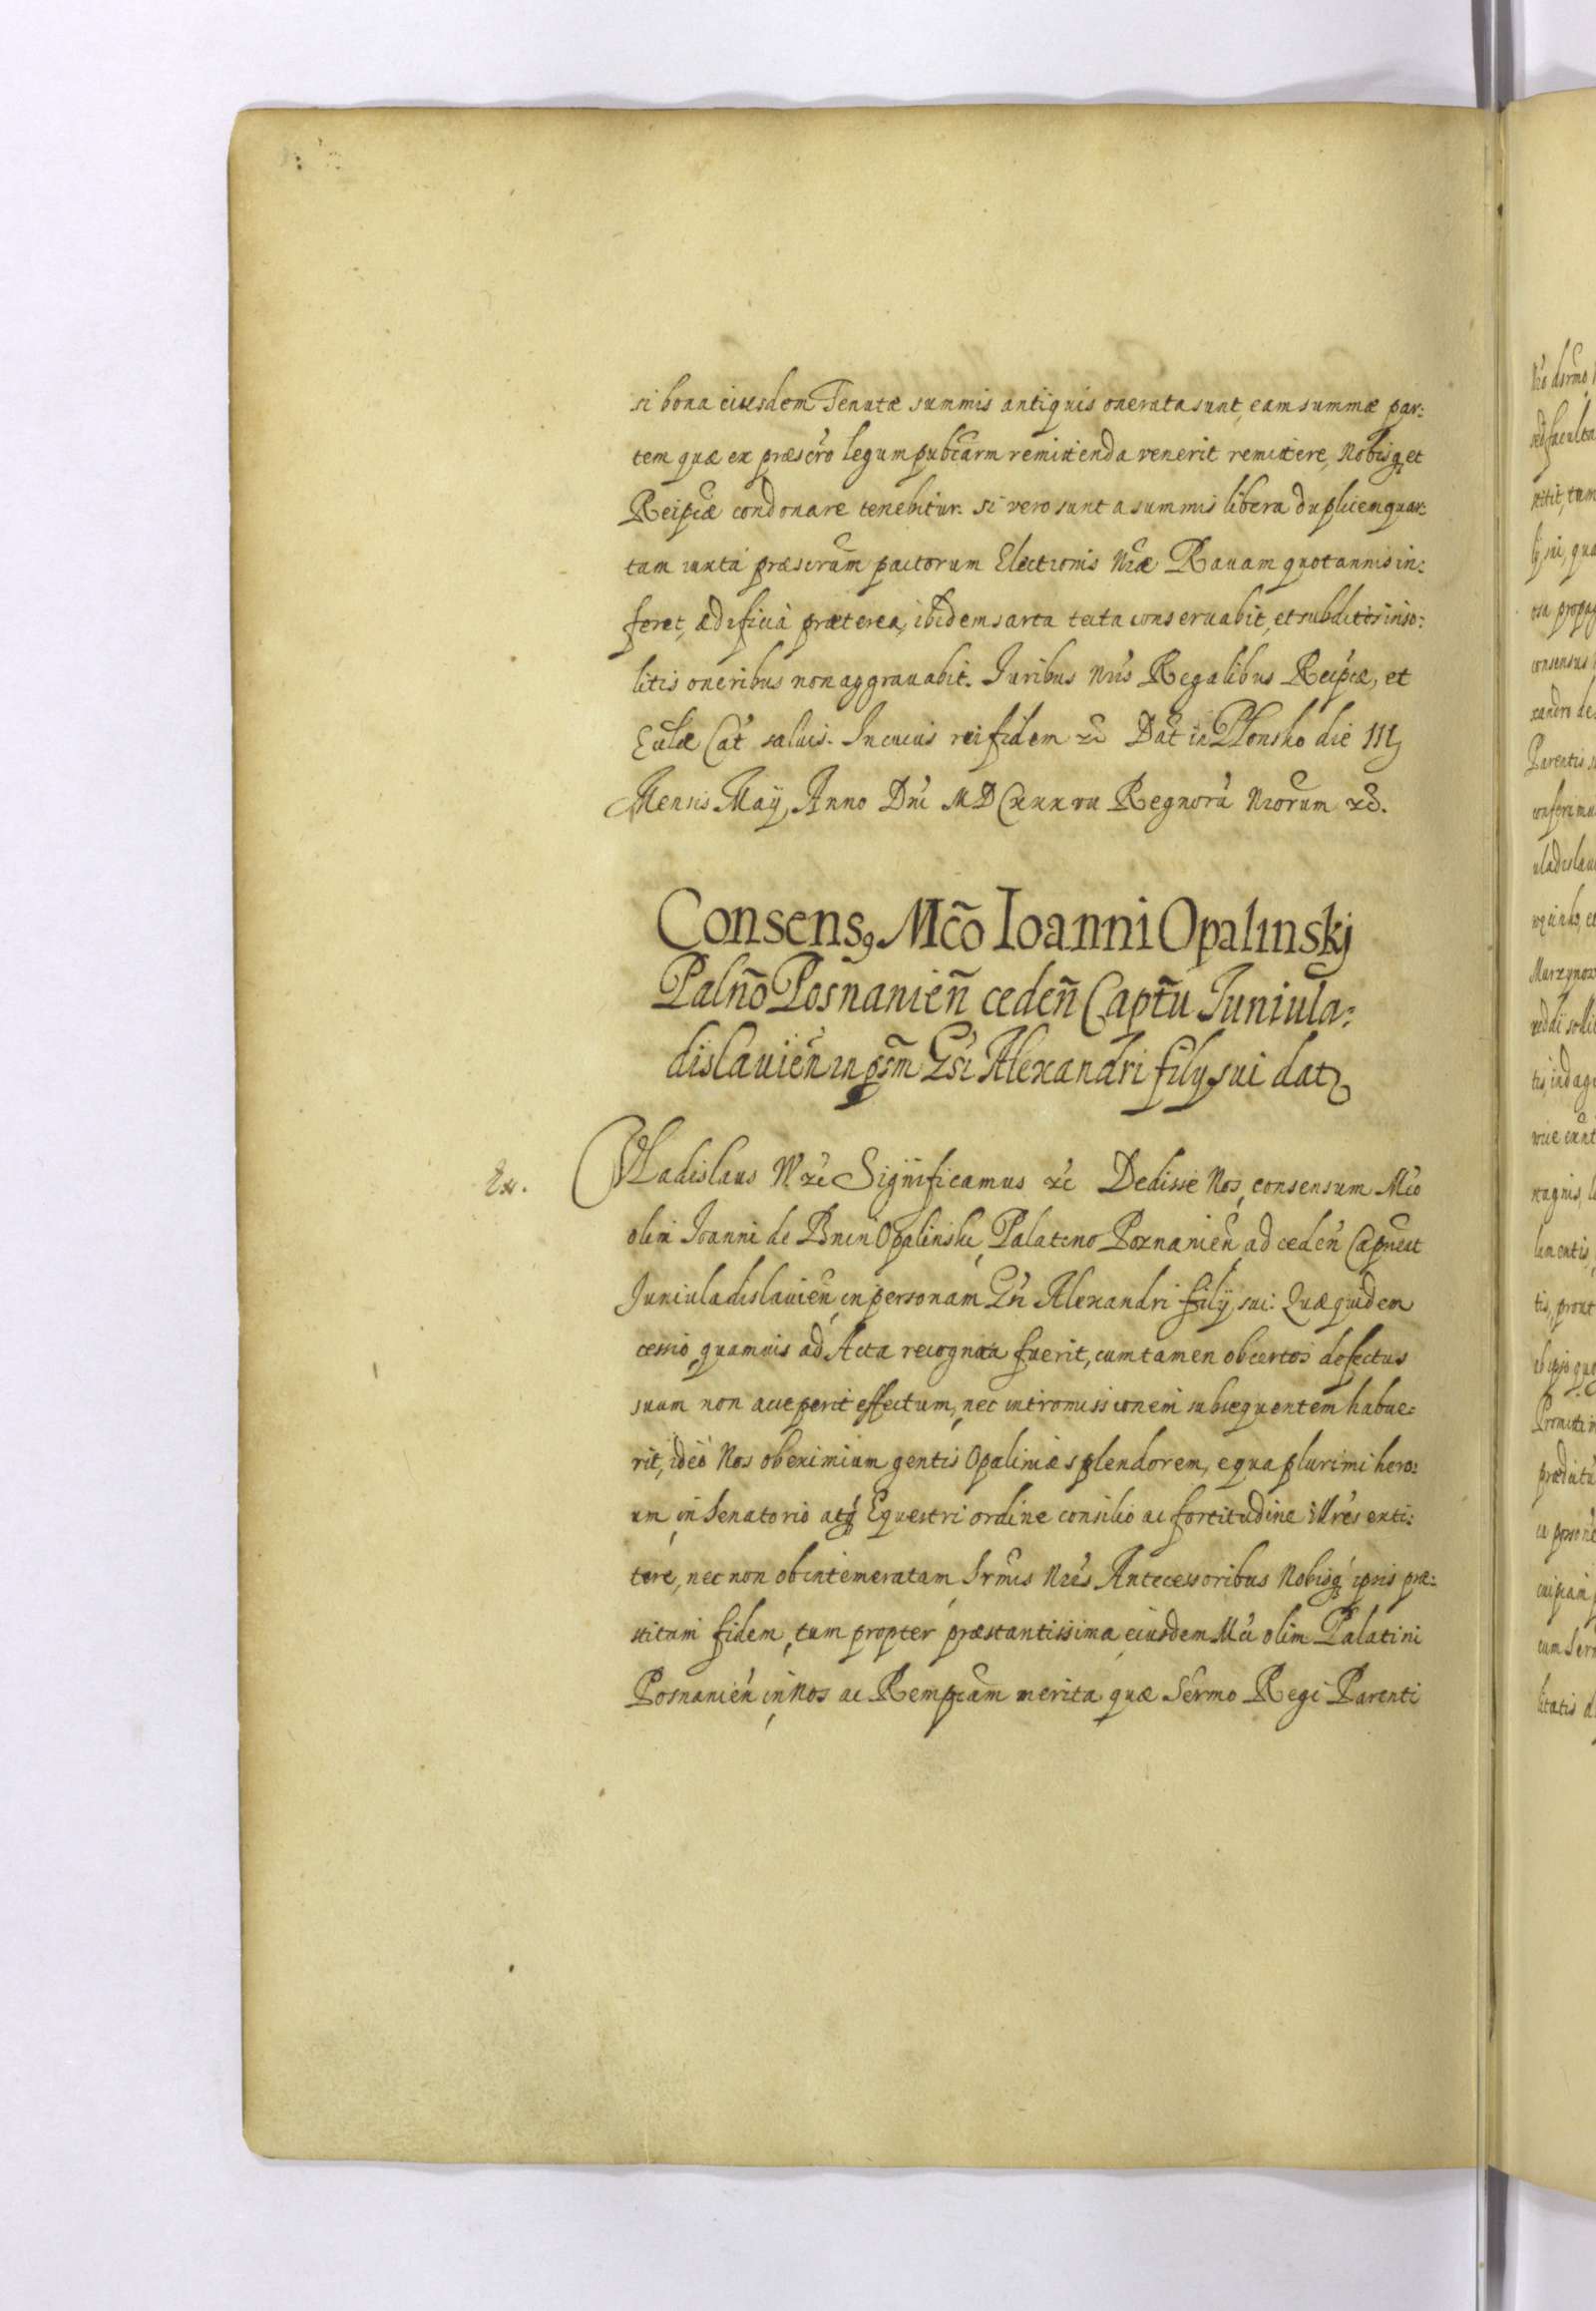 si bona eiusdem Tenutæ summis antiquis onerata sunt, eam summæ par:
tem quæ ex præscr̃o legum pubcarm remittenda venerit remittere, Nobisq, et
Reipcæ condonare tenebitur. Si vero sunt a summis libera duplicem quar:
tam iuxta præscrm̃ pactorum Electionis Nræ Rauam quotannis in:
feret, ædificia præterea, ibidem sarta tecta conseruabit, et subditos inso:
litis oneribus non aggrauabit. Iuribus Nris Regalibus Reipcæ, et
Ecclæ Cat saluis. In cuius rei fidem &c Dat in Plonsko die III
Mensis Maij, Anno Dni MDCxxxvii Regnorũ Nrorum &c.
Consens9 Mc̃o Ioanni Opalinskj
Palño Posnanieñ cedeñ Captũ Iuniula:
dislauieñ in psm̃ Gsi Alexandri filij sui dat9
Ex.
Vladislaus IV. &c Significamus &c Dedisse Nos, consensum Mco
olim Ioanni de Bnin Opalinski, Palatino Poznanieñ ad cedeñ Capneat
Iuniuladislauieñ, in personam Gsi Alexandri filij sui: Quæ quidem
cessio, quamuis ad Acta recognita fuerit, cum tamen ob certos defectus
suum non acceperit effectum, nec intromissionem subsequentem habue:
rit, ideo Nos ob eximium gentis Opaliniæ splendorem, e qua plurimi hero:
um, in Senatorio atq Equestri ordine consilio ac fortitudine illres exti:
tere, nec non ob intemeratam, Srmis Nris Antecessoribus Nobisq ipsis præ:
stitam fidem, tum propter præstantissima, eiusdem Mci olim Palatini
Posnanieñ in Nos ac Rempcam merita, quæ Sermo Regi Parenti